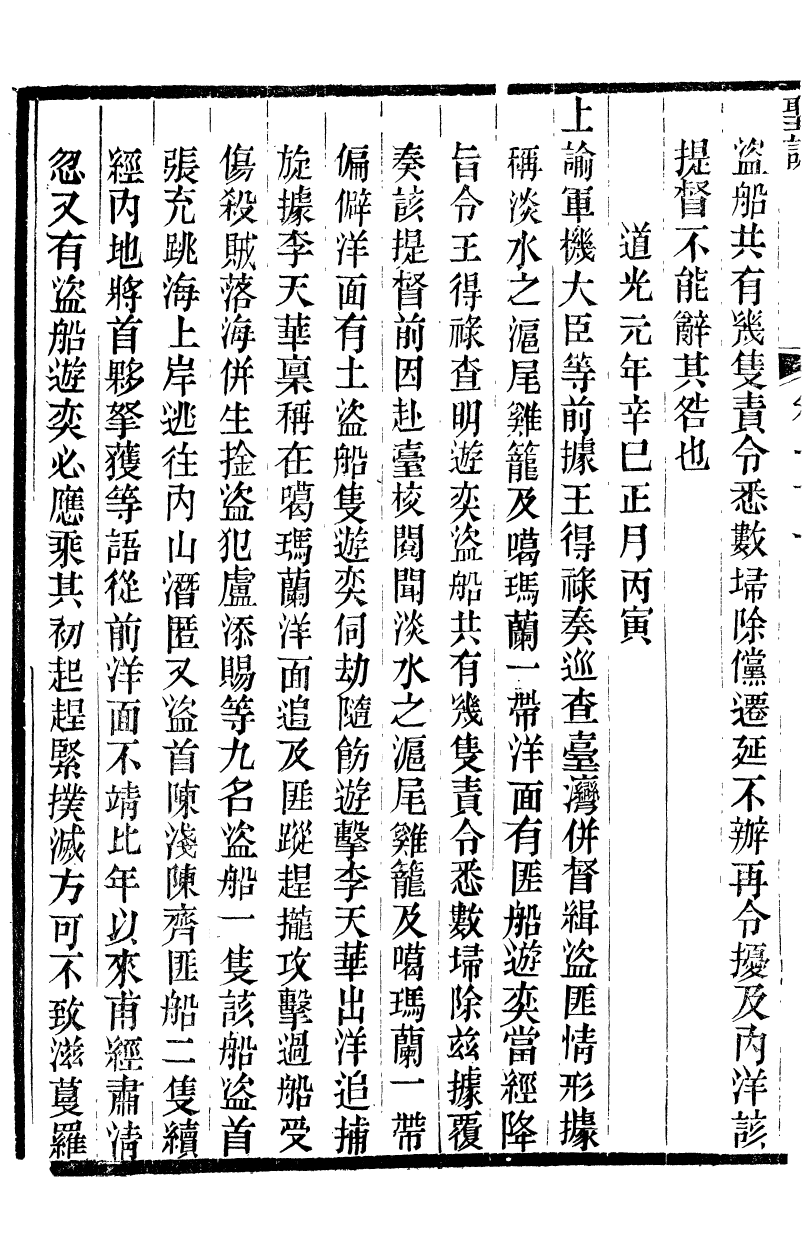 聖訓
盜船共有幾隻責令悉數埽除儻遷延不辦再令擾及內洋該
提督不能辭其咎也
道光元年辛巳正月丙寅
上諭軍機大臣等前據王得祿奏巡查臺灣併督緝盜匪情形據
稱淡水之滬尾雞籠及噶瑪蘭一帶洋面有匪船遊奕當經降
旨令王得祿查明遊奕盜船共有幾隻責令悉數埽除茲據覆
奏該提督前因赴臺校閱聞淡水之滬尾雞籠及噶瑪蘭一帶
偏僻洋面有土盜船隻遊奕伺劫隨飭遊擊李天華出洋追捕
旋據李天華稟稱在噶瑪蘭洋面追及匪蹤趕攏攻擊過船受
傷殺賊落海併生擒盜犯盧添賜等九名盜船一隻該船盜首
張充跳海上岸逃往內山潛匿又盜首陳淺陳齊匪船二隻續
經內地將首夥拏獲等語從前洋面不靖比年以來甫經肅清
忽又有盜船遊奕必應乘其初起趕緊撲滅方可不致滋蔓羅